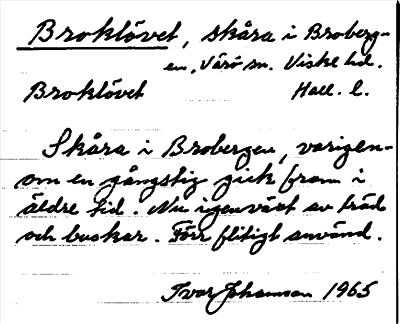 Broklövet, skåra i Broberg-
en, Värö sn. Viske hd.
Broklövet Hall. l.
Skåra i Brobergen, varigen-
om en gångstig gick fram i
äldre tid. Nu igenväxt av träd
och buskar. Förr flitigt använd.
Ivar Johansson 1965